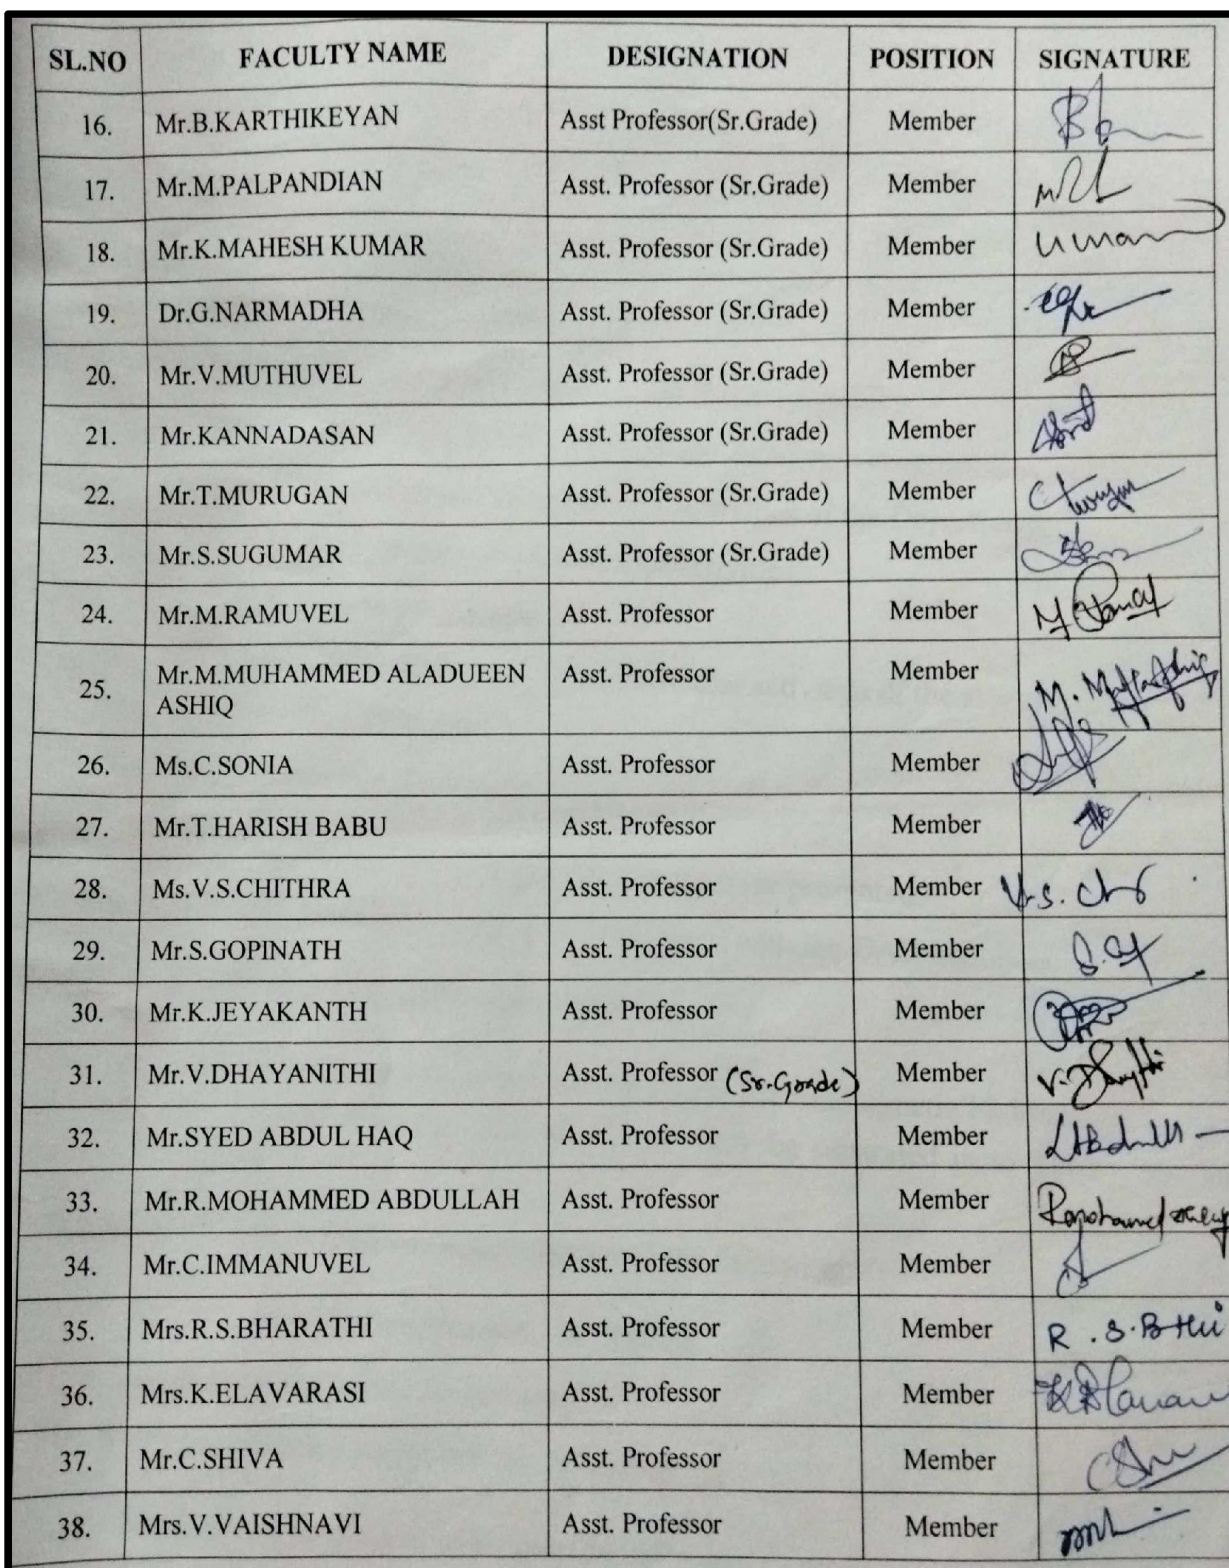 SL.NO FACULTY NAME DESIGNATION POSITION SIGNATURE
16. Mr.B.KARTHIKEYAN Asst Professor(Sr.Grade) Member
17. Mr.M.PALPANDIAN Asst. Professor (Sr.Grade) Member
18. Mr.K.MAHESH KUMAR Asst. Professor (Sr.Grade) Member
19. Dr.G.NARMADHA Asst. Professor (Sr.Grade) Member
20. Mr.V.MUTHUVEL Asst. Professor (Sr.Grade) Member
21. Mr.KANNADASAN Asst. Professor (Sr.Grade) Member
22. Mr.T.MURUGAN Asst. Professor (Sr.Grade) Member
23. Mr.S.SUGUMAR Asst. Professor (Sr.Grade) Member
24. Mr.M.RAMUVEL Asst. Professor Member
25. Mr.M.MUHAMMED ALADUEEN Asst. Professor Member
ASHIQ
26. Ms.C.SONIA Asst. Professor Member
27. Mr.T.HARISH BABU Asst. Professor Member
28. Ms.V.S.CHITHRA Asst. Professor Member
29. Mr.S.GOPINATH Asst. Professor Member
30. Mr.K.JEYAKANTH Asst. Professor Member
31. Mr.V.DHAYANITHI Asst. Professor (Sr.Grade) Member
32. Mr.SYED ABDUL HAQ Asst. Professor Member
33. Mr.R.MOHAMMED ABDULLAH Asst. Professor Member
34. Mr.C.IMMANUVEL Asst. Professor Member
35. Mrs.R.S.BHARATHI Asst. Professor Member
36. Mrs.K.ELAVARASI Asst. Professor Member
37. Mr.C.SHIVA Asst. Professor Member
38. Mrs.V.VAISHNAVI Asst. Professor Member